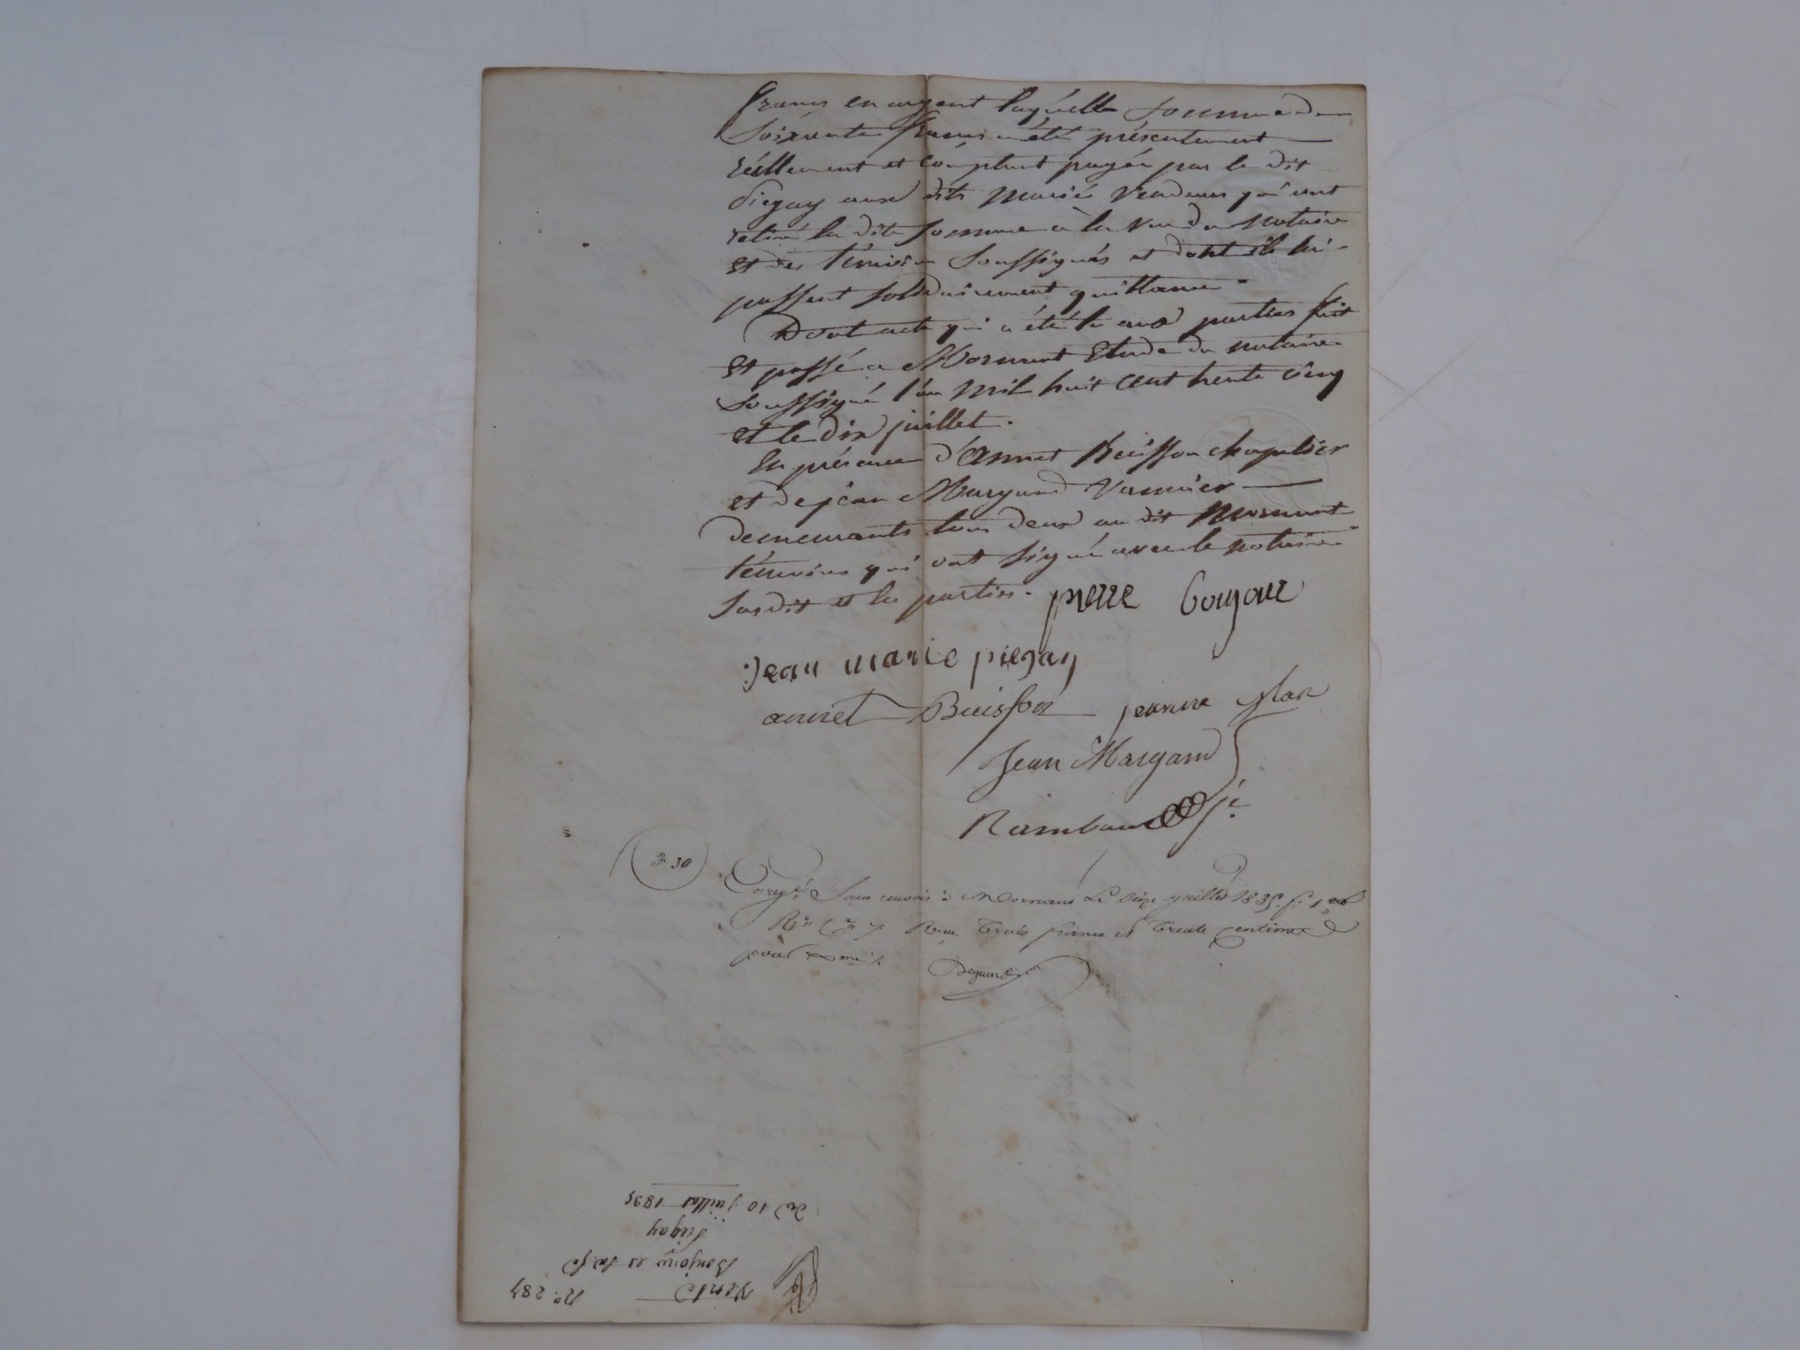 francs en argent laquelle somme de
soixante francs a été présentement
réellement et comptant payée par le dit
piegay aux dits mariés vendeurs qui ont
retiré la dite somme à la vue du notaire
et des témoins soussignés et dont ils lui
passent solidairement quittance.
Dont acte qui a été lu aux parties fait
et passé a Mornant Etude du notaire
soussigné l'an mil huit cent trente cinq
et le dix juillet.
En présence d'Annet Buisson chapelier
et de jean Margand
demeurants tous deux au dit Mornant
témoins qui ont signé avec le notaire
susdit et les parties. pierre
jean marie piegay
annet Buisson jeanne
Jean Margand
Rambaud
3.30
Enregé sans renvois à Mornant Le seize juillet 1835. f°
Reçu Trois francs et Trente centimes
pour
du 10 juillet 1835
piegay
Vente
N°. 287